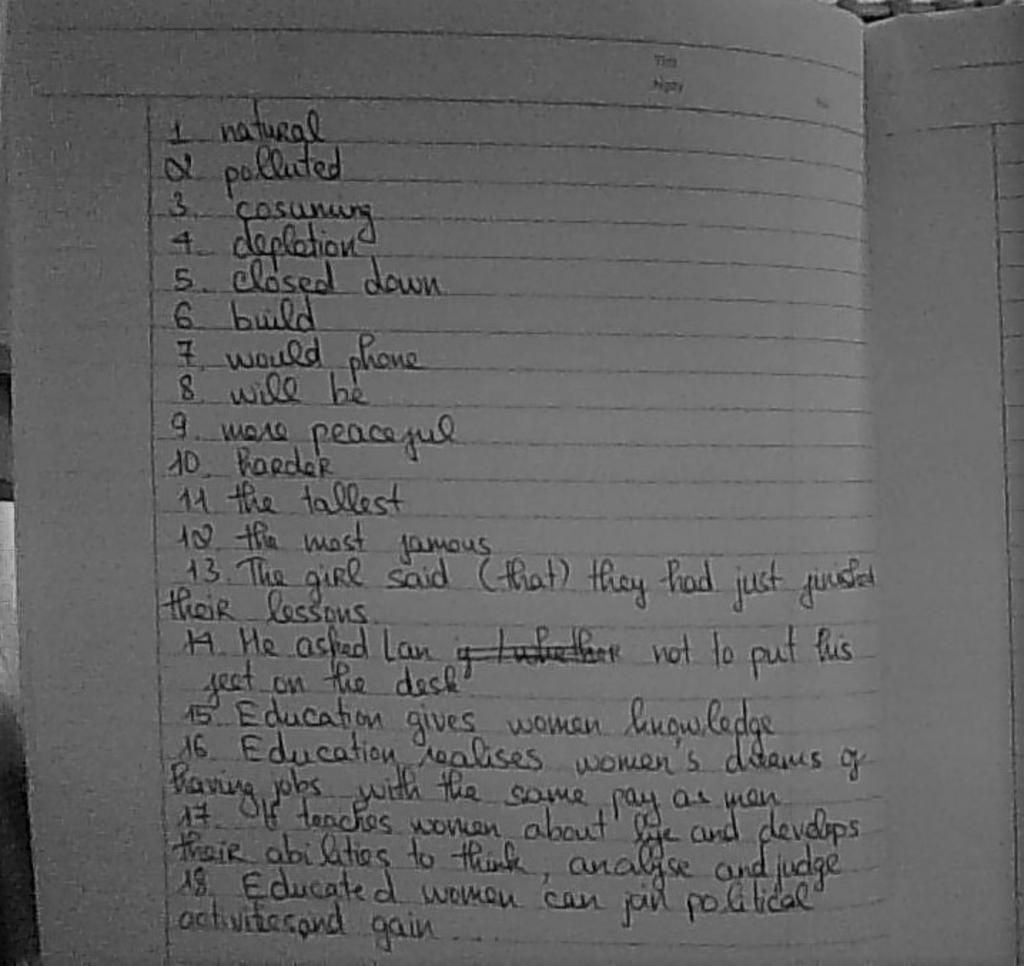 Thứ
Ngày
No
1 natural
2 polluted
3. cosunung
4. depletion
5. closed down
6 build
7. would phone
8 will be
9. more peaceful
10. harder
11 the tallest
12 the most famous
13. The girl said (that) they had just finished
their lessons
14. He asked Lan not to put his
feet on the desk
15. Education gives women knowledge
16. Education realises women's dreams of
having jobs with the same pay as men
17. It teaches women about life and develops
their abilities to think, analyse and judge
18. Educated women can join political
activites and gain